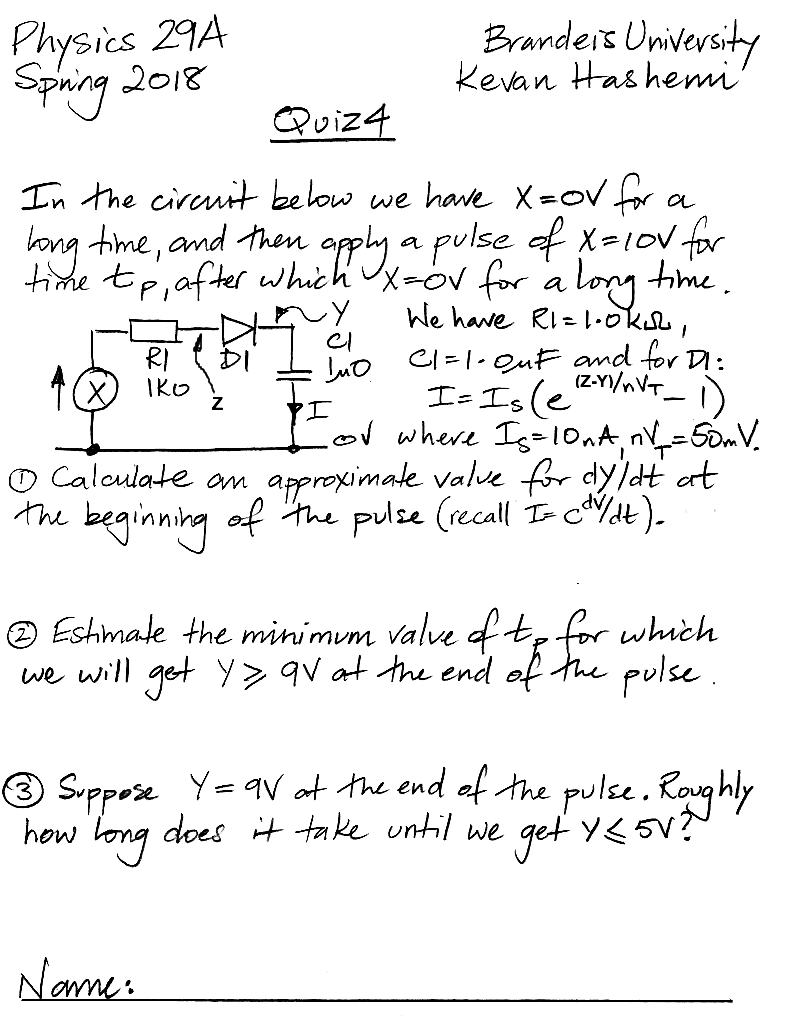 Physics 29A
Brandeis University
Spring 2018
Kevan Hashemi
Quiz 4
In the circuit below we have X=0V for a
long time, and then apply a pulse of X=10V for
time tp, after which X=0V for a long time.
We have R1=1.0kΩ,
C1=1.0uF and for D1:
I=Is(e^(Z-Y)/nVT - 1)
where Is=10nA, nVT=50mV.
R1
1K0
Z
D1
Y
C1
1u0
X
I
0V
① Calculate an approximate value for dY/dt at
the beginning of the pulse (recall I= CdV/dt).
② Estimate the minimum value of tp for which
we will get Y⩾9V at the end of the pulse.
③ Suppose Y=9V at the end of the pulse. Roughly
how long does it take until we get Y⩽5V?
Name: